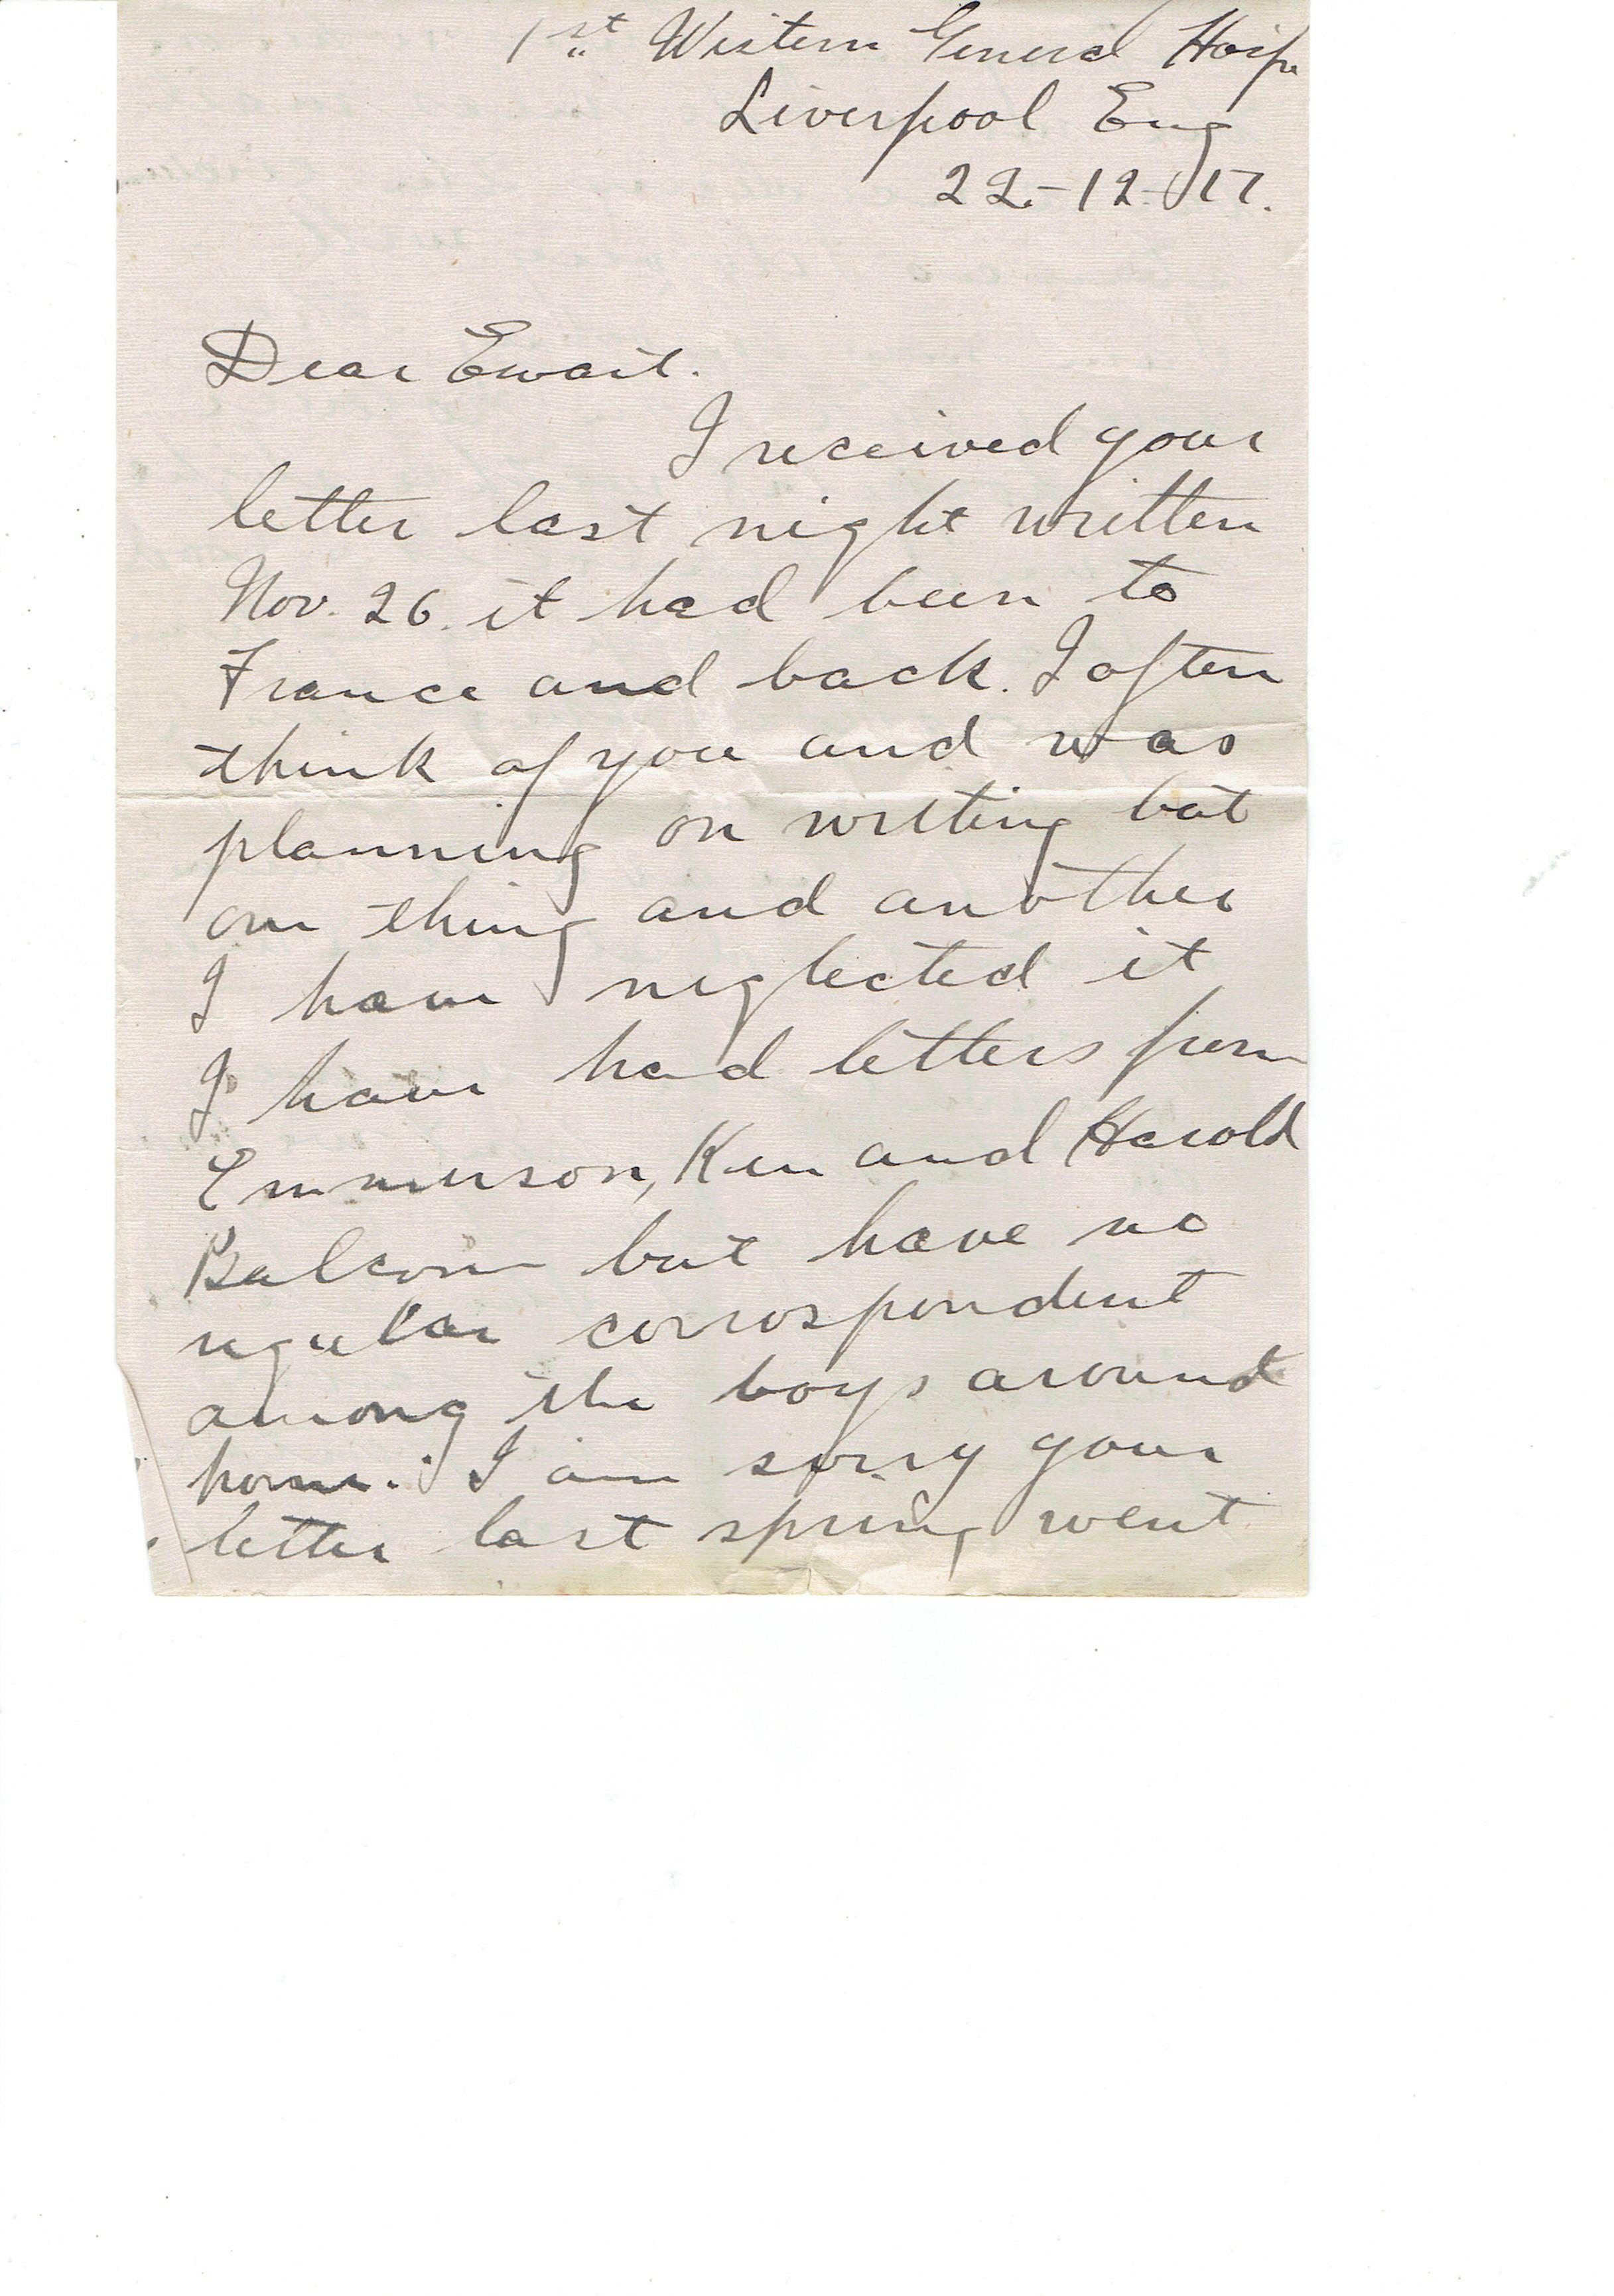 1st Western General Hosp.
Liverpool Eng
22-12-17.
Dear Ewart.
I received your
letter last night written
Nov. 26. it had been to
France and back. I often
think of you and was
planning on writing but
one thing and another
I have neglected it
I have had letters from
Emmerson, Ken and Harold
Balcom but have no
regular corrospondent
among the boys around
home. I am sorry your
letter last spring went